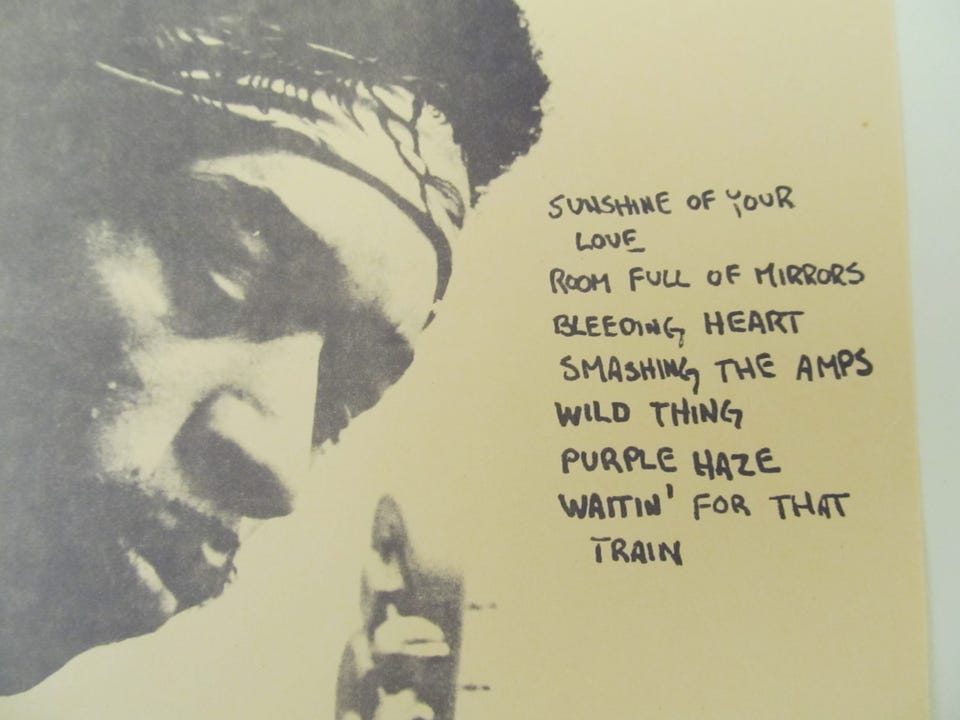 SUNSHINE OF YOUR
LOVE
ROOM FULL OF MIRRORS
BLEEDING HEART
SMASHING THE AMPS
WILD THING
PURPLE HAZE
WAITIN' FOR THAT
TRAIN